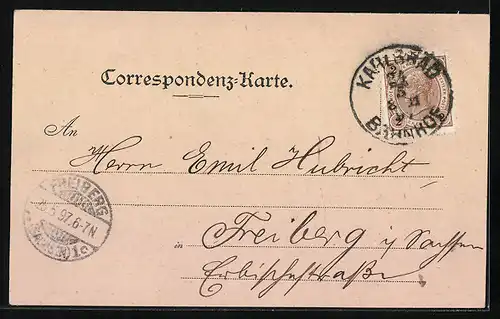 Correspondenz-Karte.
KARLSBAD
BAHNHOF
An
Herrn Emil Hubricht
FREIBERG
.97.6-7N
(SACHSEN)1c
in Freiberg i/Sachsen
Erbischestraße